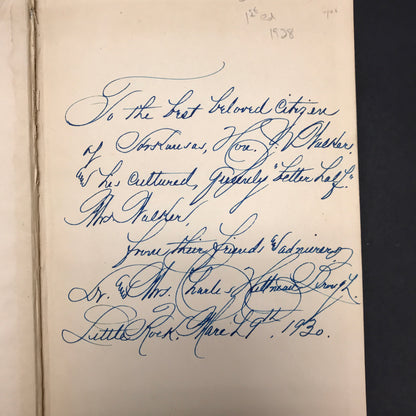 1st ed
1928
To the best beloved Citizen
of Arkansas, Hon. J. V. Walker,
& his Cultured, Queenly "better half"
Mrs Walker,
from their friends & admirers,
Dr. & Mrs. Charles Hillman Brough.
Little Rock, March 29th, 1930.